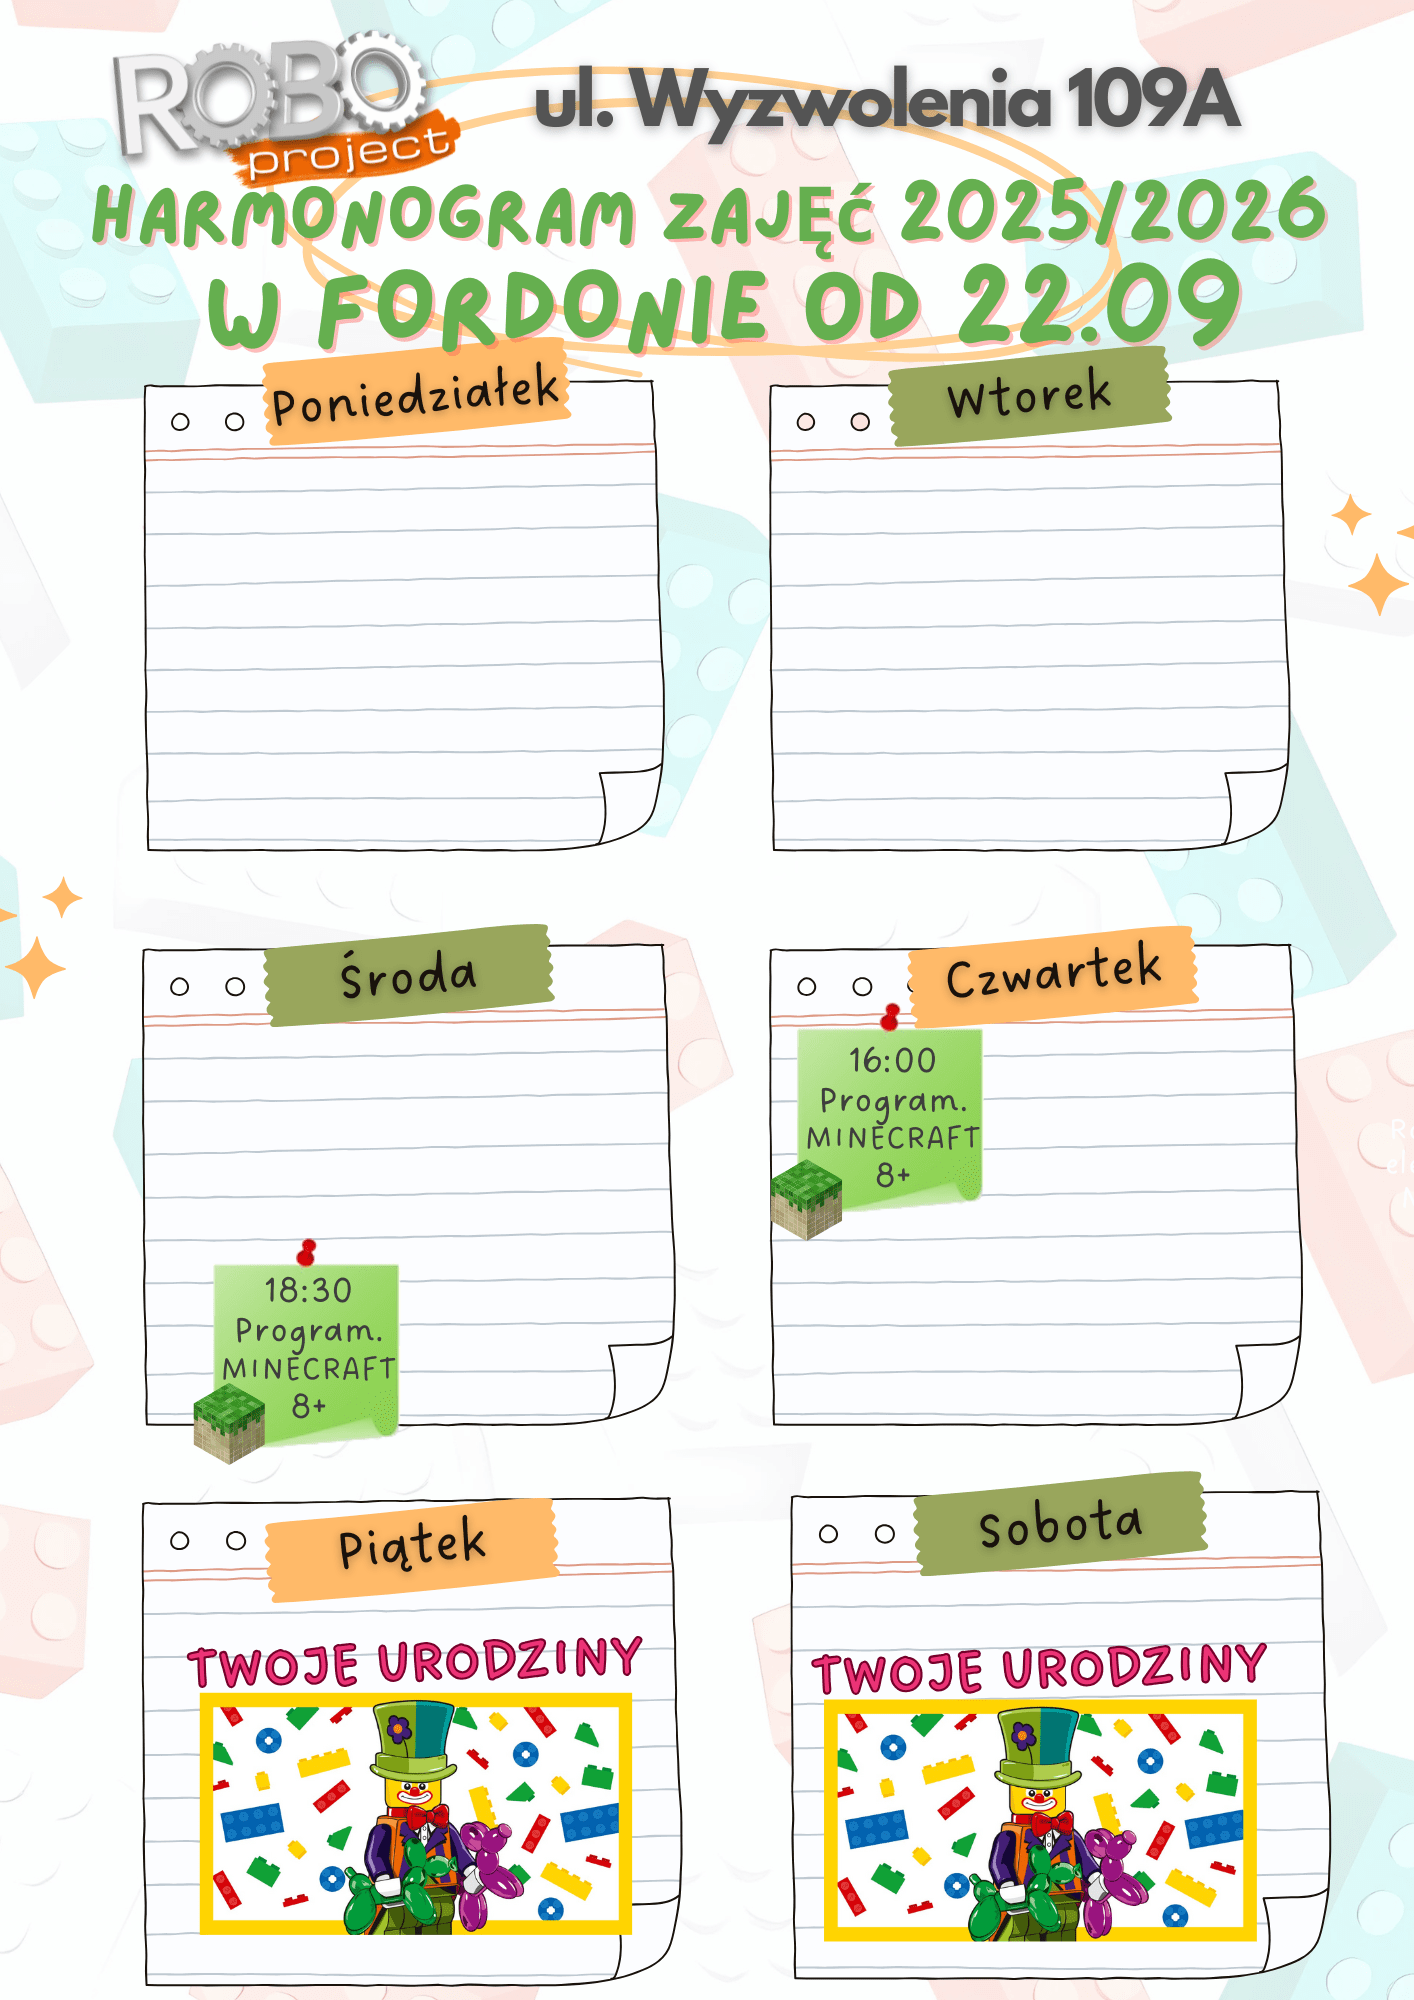 ROBO
project
ul. Wyzwolenia 109A
HARMONOGRAM ZAJĘĆ 2025/2026
W FORDONIE OD 22.09
Poniedziałek
Wtorek
Środa
18:30
Program.
MINECRAFT
8+
Czwartek
16:00
Program.
MINECRAFT
8+
Piątek
TWOJE URODZINY
Sobota
TWOJE URODZINY